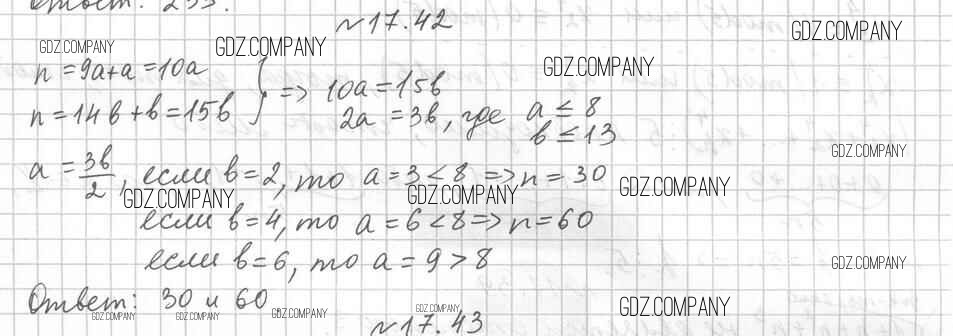 Ответ: 255.
№17.42
n = 9a + a = 10a
n = 14b + b = 15b } => 10a = 15b
2a = 3b, где a ≤ 8
b ≤ 13
a = 3b/2, если b = 2, то a = 3 < 8 => n = 30
если b = 4, то a = 6 < 8 => n = 60
если b = 6, то a = 9 > 8
Ответ: 30 и 60
№17.43
GDZ.COMPANY
GDZ.COMPANY
GDZ.COMPANY
GDZ.COMPANY
GDZ.COMPANY
GDZ.COMPANY
GDZ.COMPANY
GDZ.COMPANY
GDZ.COMPANY
GDZ.COMPANY
GDZ.COMPANY
GDZ.COMPANY
GDZ.COMPANY
GDZ.COMPANY